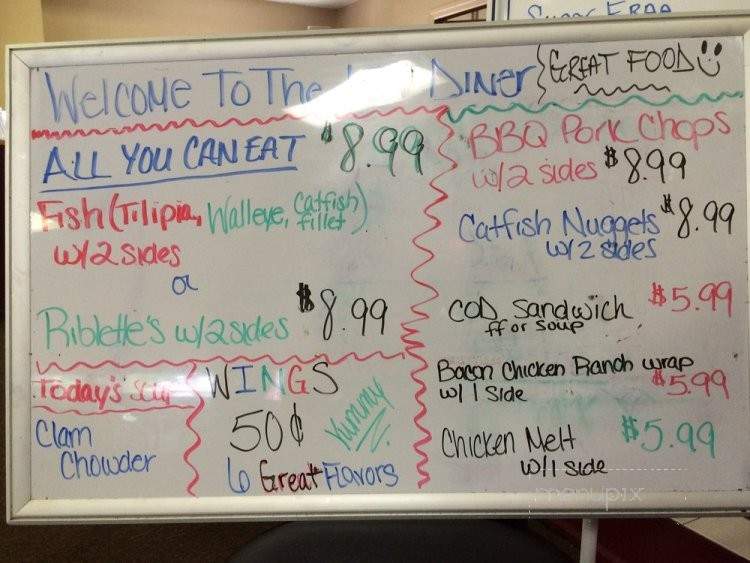 Sugar FREE
WelCOME To The DINER
GREAT FOOD
ALL YOU CAN EAT $8.99
Fish (Tilipia, Walleye, Catfish fillet)
w/2 sides
or
Riblette's w/2 sides $8.99
Today's Soup
Clam
Chowder
WINGS
50¢
Yummy
6 Great Flavors
BBQ Pork Chops
w/2 sides $8.99
Catfish Nuggets $8.99
w/2 sides
COD Sandwich $5.99
ff or soup
Bacon Chicken Ranch wrap
w/ 1 Side $5.99
Chicken Melt $5.99
w/1 side
menupix